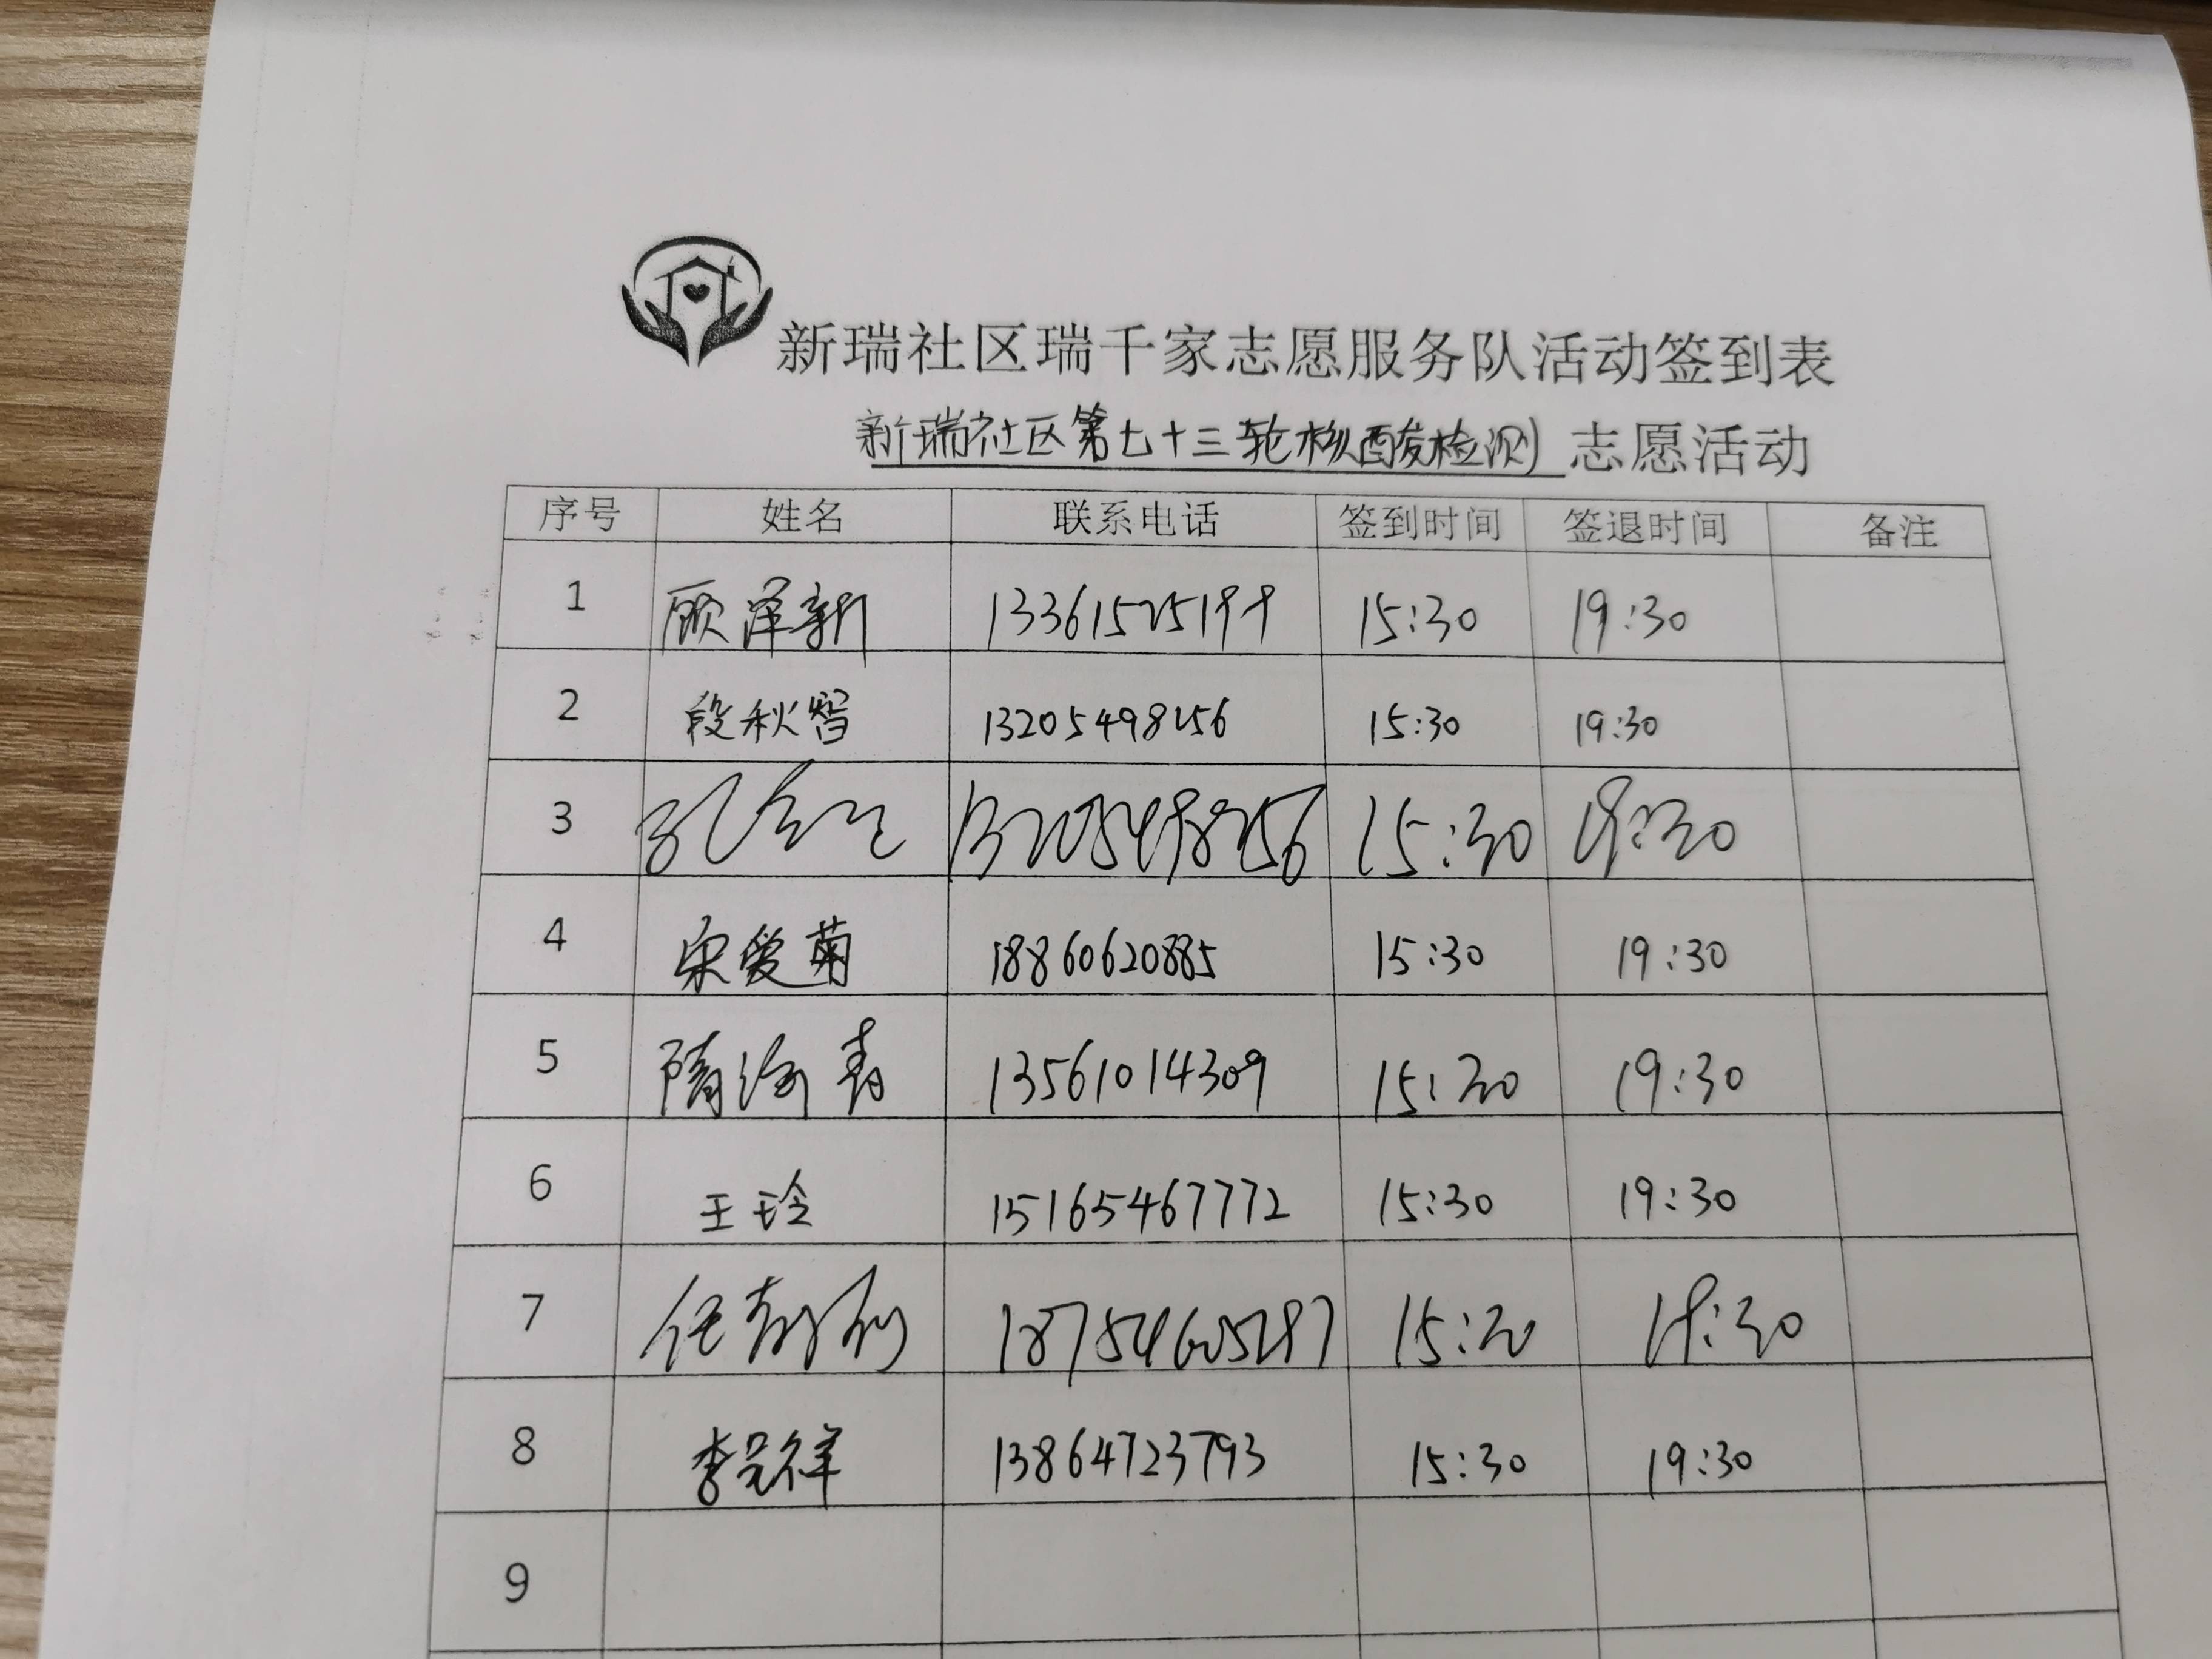 新瑞社区瑞千家志愿服务队活动签到表
新瑞社区第七十三轮核酸检测 志愿活动
序号 姓名 联系电话 签到时间 签退时间 备注
1 顾泽新 13361525199 15:30 19:30
2 段秋智 13205498256 15:30 19:30
3 孔 13205498256 15:30 19:30
4 宋爱菊 18860620885 15:30 19:30
5 隋 青 13561014309 15:30 19:30
6 王玲 15165467772 15:30 19:30
7 任 18754605297 15:30 19:30
8 李 祥 13864723793 15:30 19:30
9